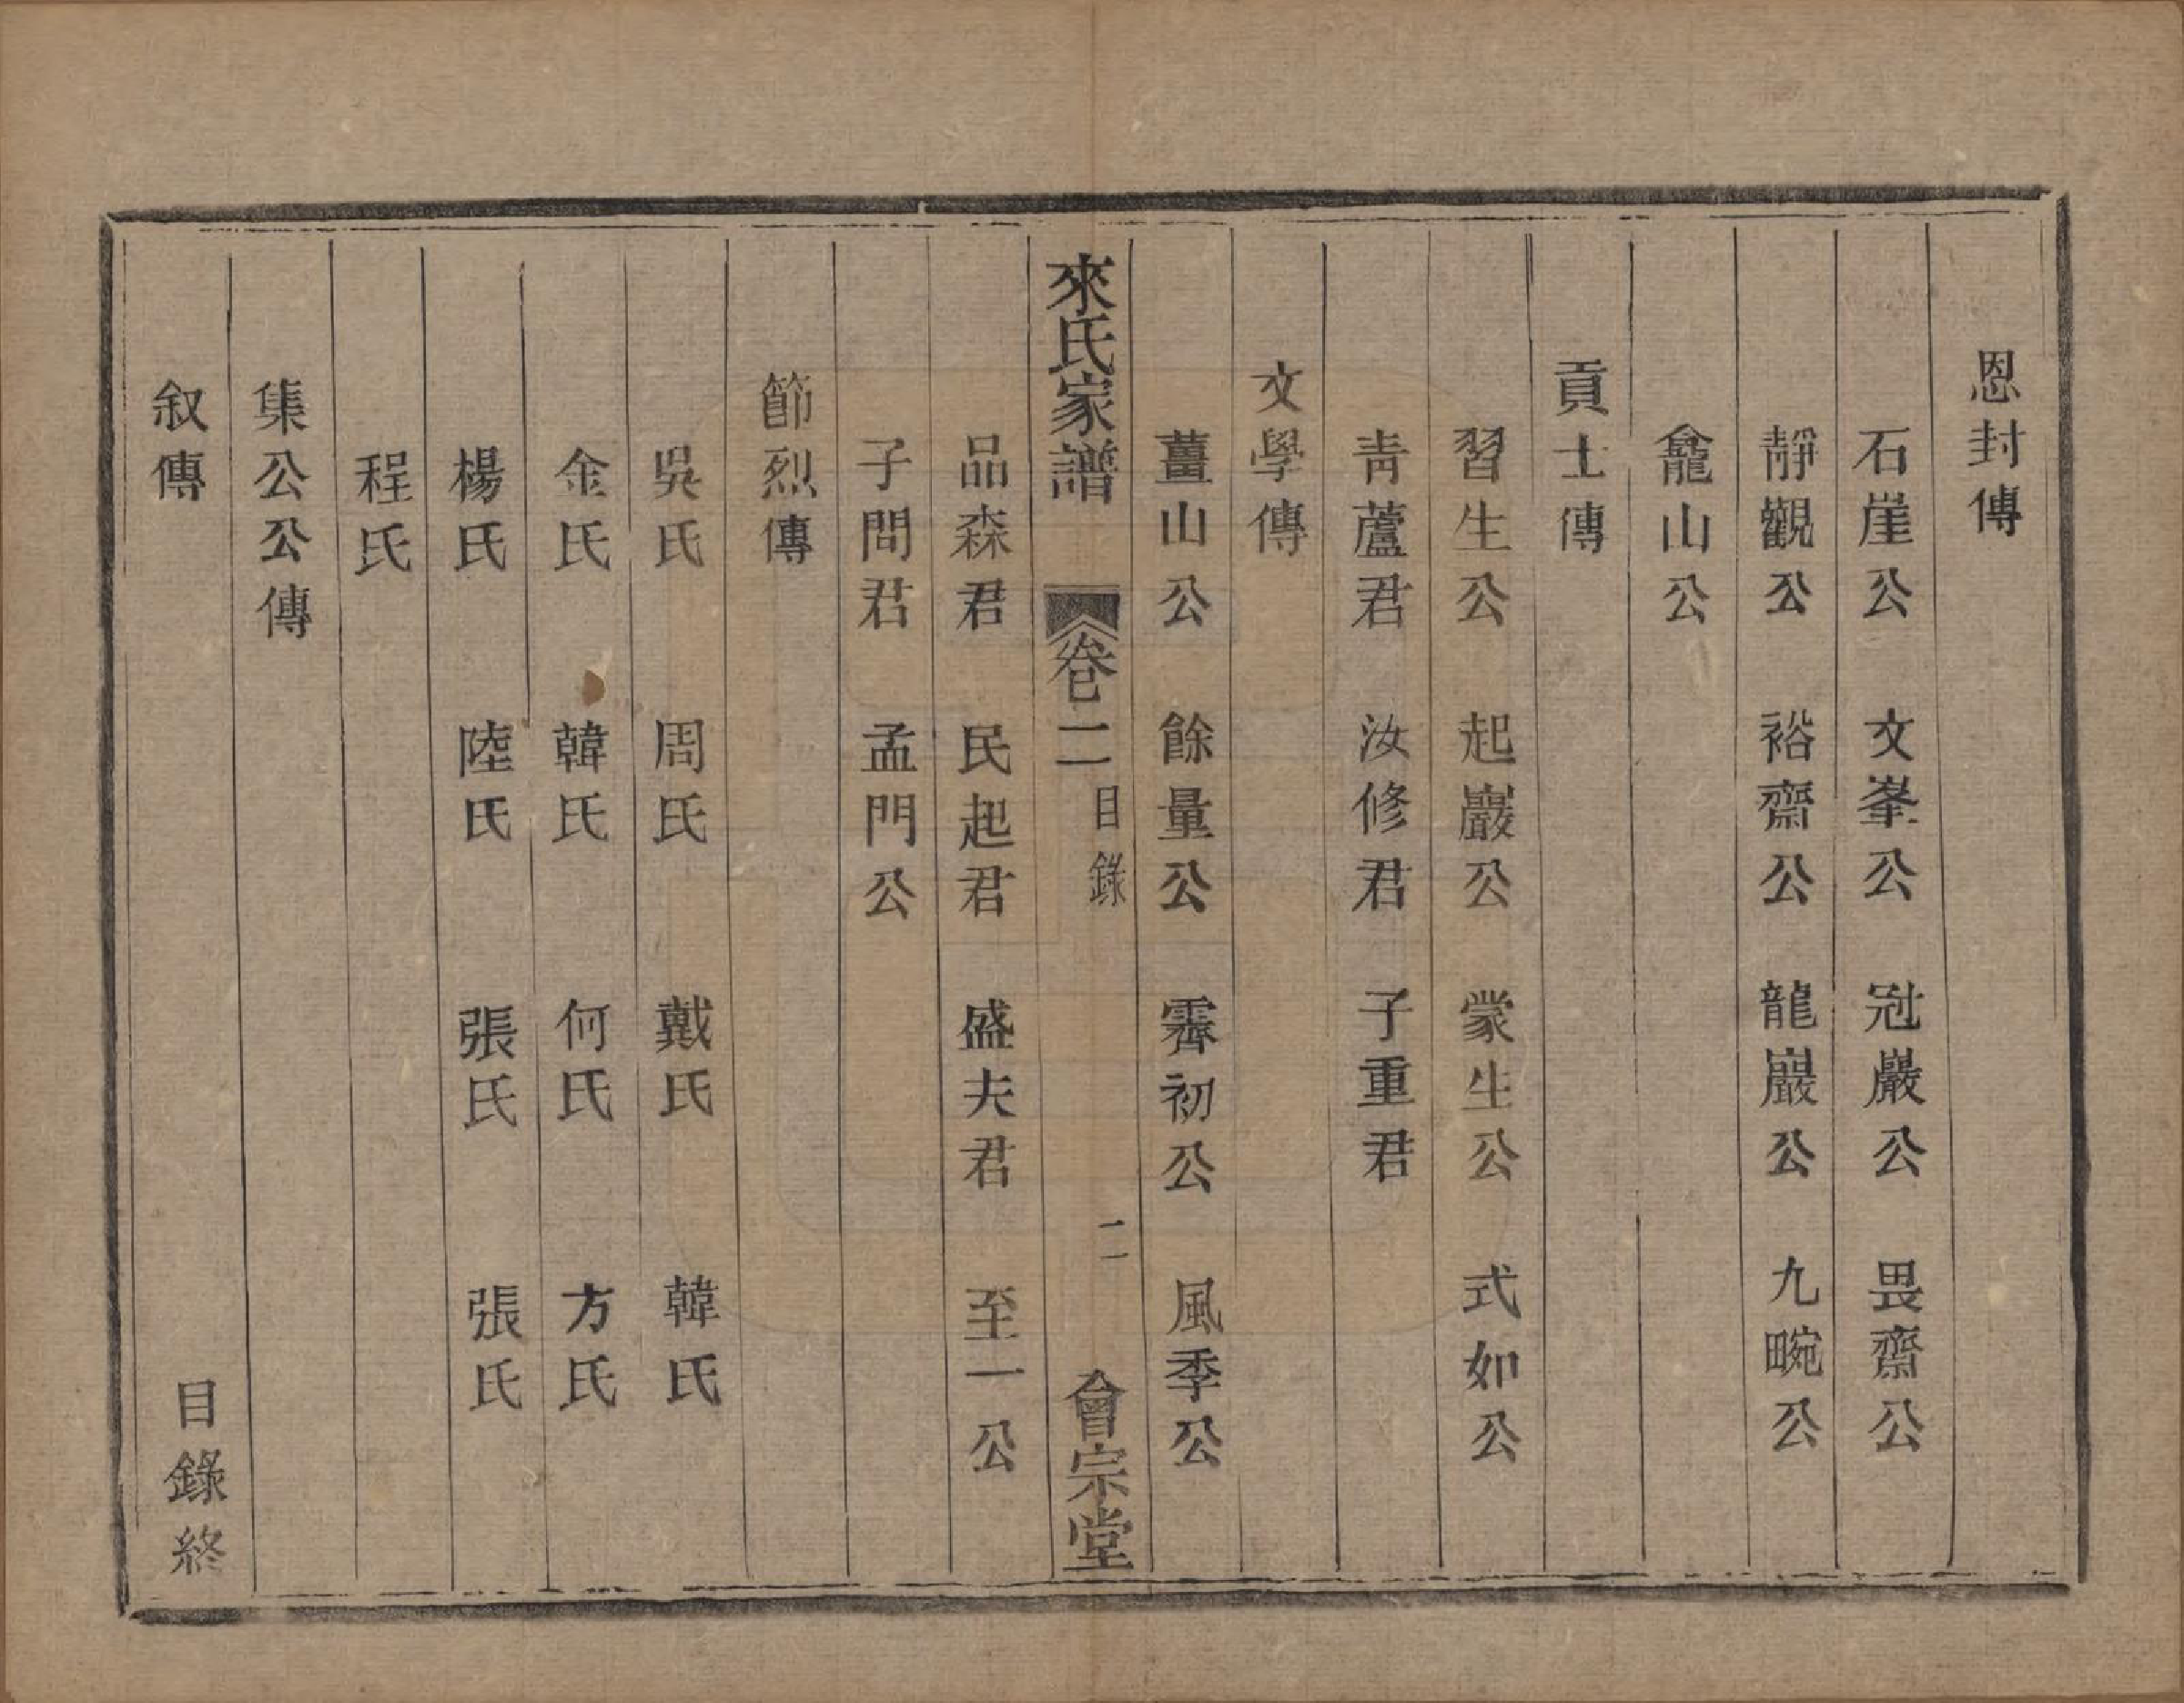 恩封傳
石崖公　文峯公　冠巖公　畏齋公
靜觀公　裕齋公　龍巖公　九畹公
龕山公
貢士傳
習生公　起巖公　蒙生公　式如公
靑蘆君　汝修君　子重君
文學傳
薑山公　餘量公　霽初公　風季公
來氏家譜　卷二　目錄　二　會宗堂
品森君　民起君　盛夫君　至一公
子問君　孟門公
節烈傳
吳氏　周氏　戴氏　韓氏
金氏　韓氏　何氏　方氏
楊氏　陸氏　張氏　張氏
程氏
集公公傳
叙傳　目錄終